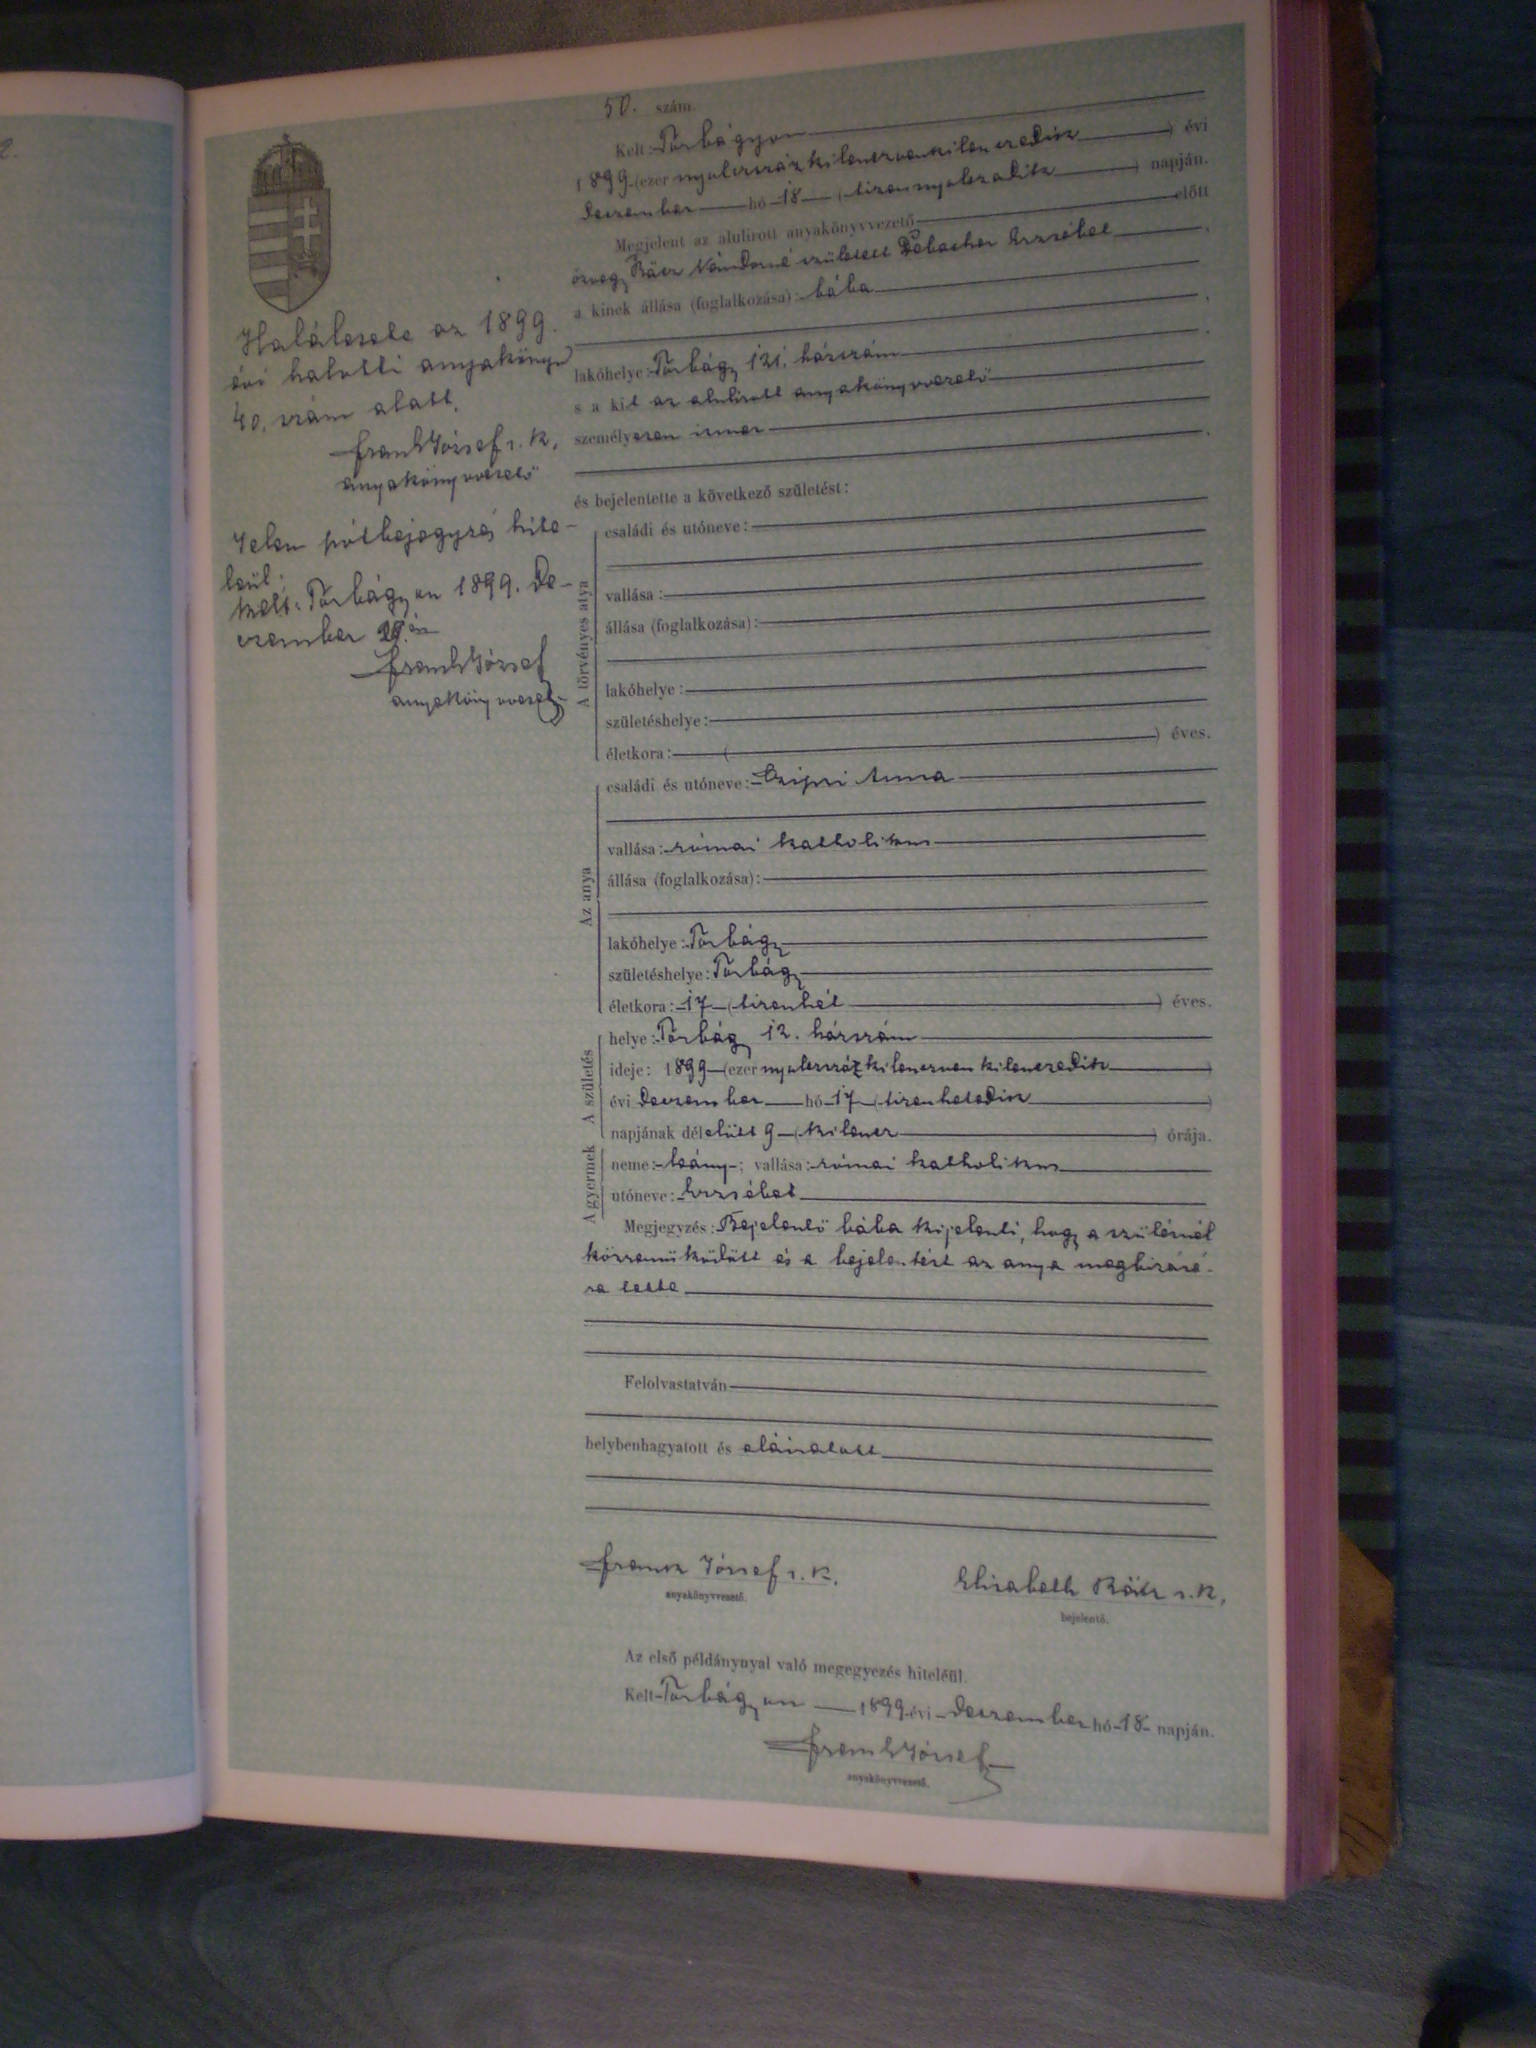 2.
50. szám.
Kelt: Törbágyon
1899 (ezer nyolczszázkilenczvenkilenczedik) évi
deczember hó 18 (tizennyolczadik) napján.
Megjelent az alulirott anyakönyvvezető előtt
özvegy Rácz Nándorné született Erzsébet
a kinek állása (foglalkozása): bába
lakóhelye: Törbágy 121. házszám
s a kit az alulirott anyakönyvvezető
személyesen ismer
és bejelentette a következő születést:
A törvényes atya
családi és utóneve:
vallása:
állása (foglalkozása):
lakóhelye:
születéshelye:
életkora: ( ) éves.
Az anya
családi és utóneve: Czipri Anna
vallása: római katholikus
állása (foglalkozása):
lakóhelye: Törbágy
születéshelye: Törbágy
életkora: 17 (tizenhét) éves.
A születés
helye: Törbágy 12. házszám
ideje: 1899 (ezer nyolczszázkilenczvenkilenczedik)
évi deczember hó 17 (tizenhetedik)
napjának délelőtt 9 (kilencz) órája.
A gyermek
neme: leány; vallása: római katholikus
utóneve: Erzsébet
Megjegyzés: Bejelentő bába kijelenti, hogy a szülésnél
közreműködött és a bejelentést az anya megbizásá-
ra tette
Felolvastatván
helybenhagyatott és aláiratott
Franck József s. k.
anyakönyvvezető.
Elisabeth Rátz s. k.
bejelentő.
Az első példánynyal való megegyezés hiteléül.
Kelt Törbágyon 1899 évi deczember hó 18 napján.
Franck József
anyakönyvvezető.
Halálesete az 1899.
évi halotti anyakönyv
40. szám alatt.
Franck József s. k.
anyakönyvvezető
Jelen pótbejegyzés hite-
leül.
Kelt: Törbágyon 1899. de-
czember én
Franck József
anyakönyvvezető